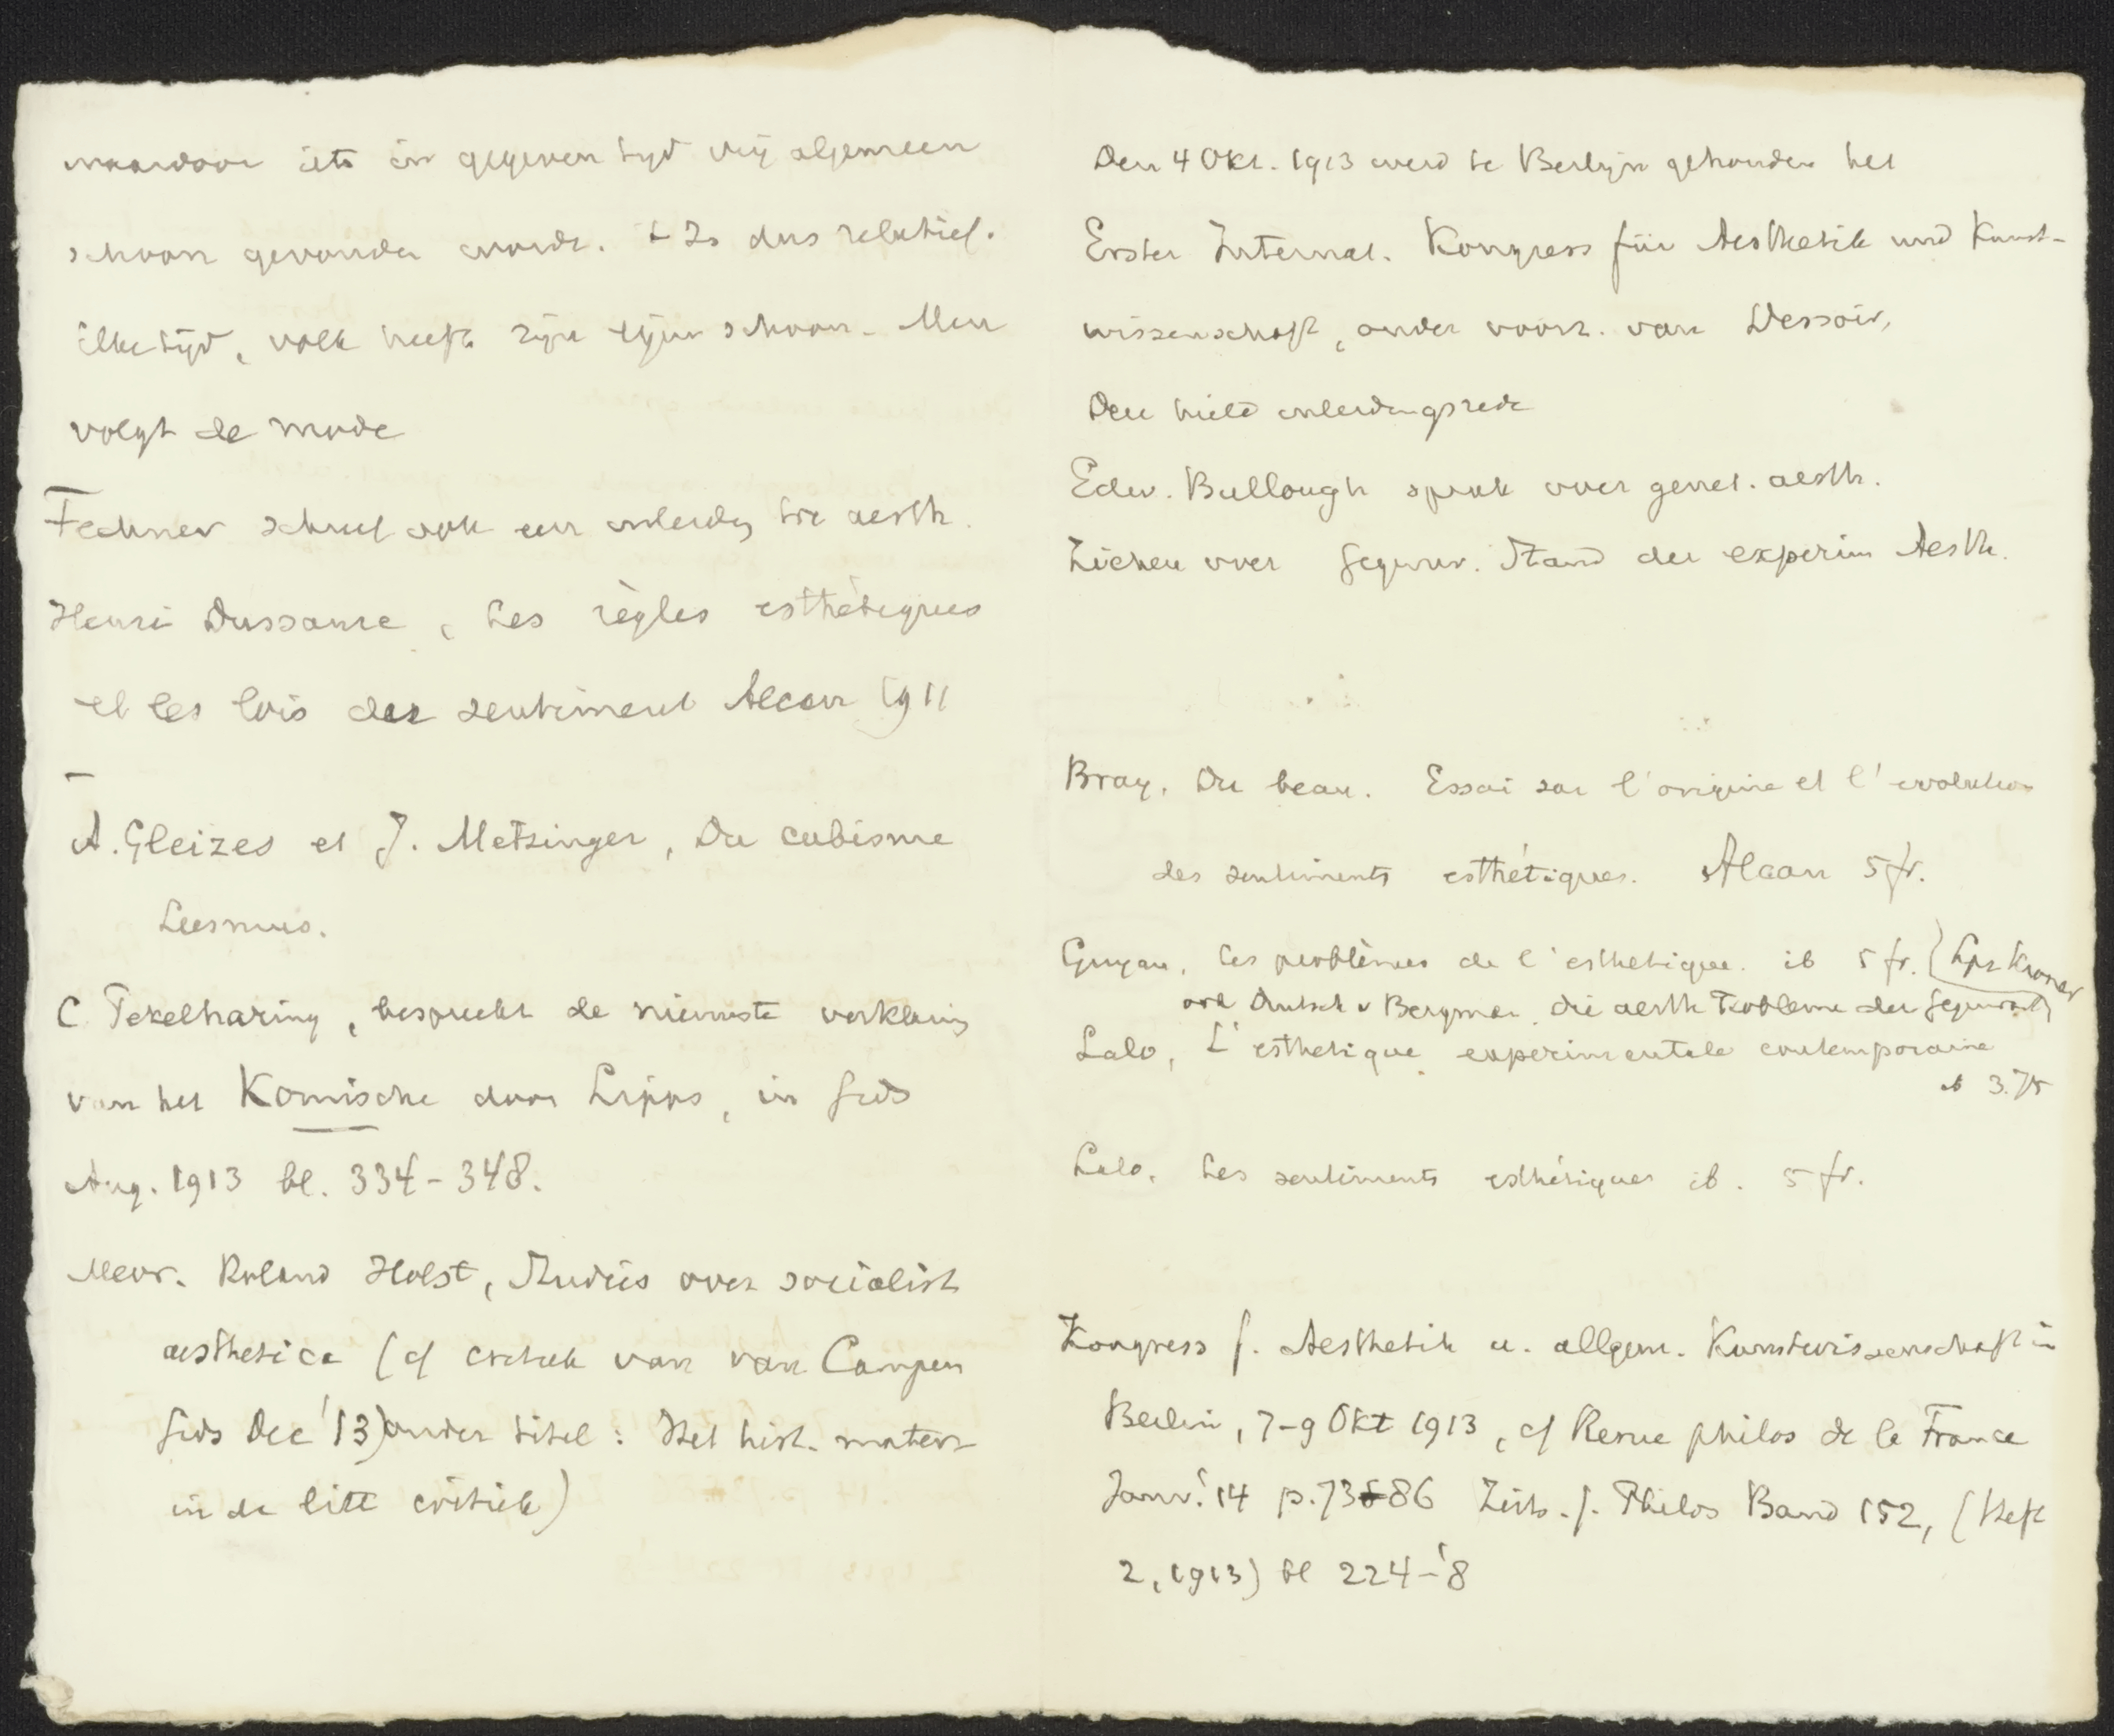 waardoor iets in gegeven tijd vrij algemeen
schoon gevonden wordt. t Is dus relatief.
Elke tijd, volk heeft zijn eigen schoon. Men
volgt de mode
Fechner schreef ook een inleidg tot aesth.
Henri Dussauze, Les règles esthétiques
et les lois des sentiment Alcan 1911
A. Gleizes et J. Metzinger, Du cubisme
Leesmus.
C Pekelharing, bespreekt de nieuwste verklaring
van het Komische door Lipps, in Gids
Aug. 1913 bl. 334-348.
Mevr. Roland Holst, Studies over socialist
aesthetica (cf critiek van van Campen
Gids Dec '13) onder titel: Het hist. mater
in de litt critiek)
Den 4 Okt. 1913 werd te Berlijn gehouden het
Erster Internat. Kongress für Aesthetik und Kunst-
wissenschaft, onder voorz. van Dessoir,
Deze hield inleidingsrede
Edw. Bullough sprak over genet. aesth.
Ziehen over Gegenw. Stand der experim Aesth.
Bray, Du beau. Essai sur l'origine et l'evolution
des sentiments esthétiques. Alcan 5 fr.
Guyau, Les problèmes de l'esthetique. ib 5 fr. (Lpz Kroner
ook Deutsch v Bergman. Die aesth Probleme der Gegenwart)
Lalo, L'esthetique experimentale contemporaine
ib 3.75
Lalo. Les sentiments esthétiques ib. 5 fr.
Kongress f. Aesthetik u. allgem. Kunstwissenschaft in
Berlin, 7-9 Okt 1913, cf Revue philos de la France
Janv. '14 p. 73-86 Zeits. f. Philos Band 152, (Heft
2, 1913) bl 224-'8